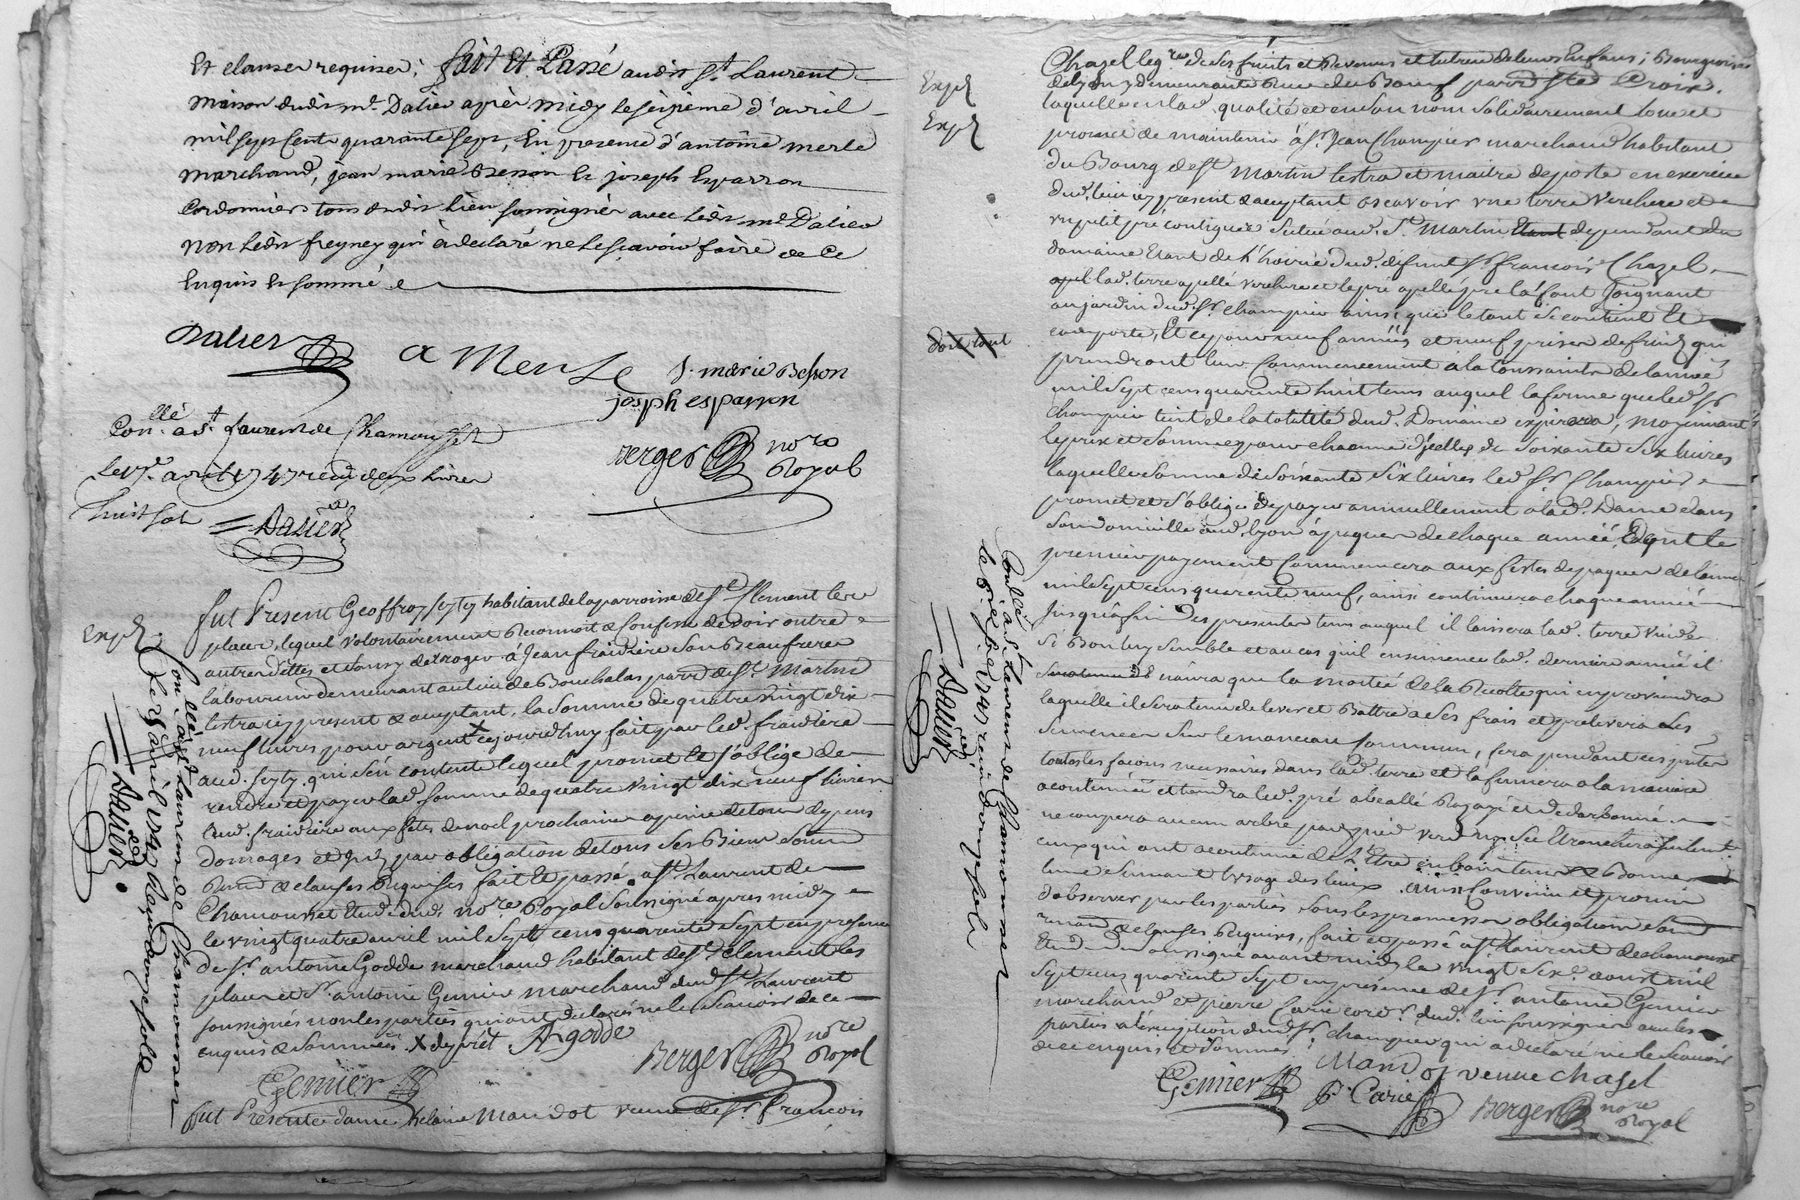 Et clauses requises, fait et Passé audit St Laurent
maison dudit mr. Dalier après midy le seizieme d'avril
mil sept cent quarante sept, En presence d'antoine merle
marchand, jean marie Besson Et joseph Esparron
Cordonniers tous dudit Lieu soussignés avec ledit mr Dalier
non ledit freyney qui à declaré ne le sçavoir faire de ce
Enquis Et sommé
Dalier
a Merle
J. marie Besson
joseph esparron
Conllé. a St Laurent de Chamousset
Le avril 1747 reçu deux livres
huit sols
Dalier
Berger nore Royal
Expd.
fut Present Geoffroy seyty habitant de la parroisse de St Clement les
places, lequel volontairement Reconnoit & Confesse devoir outre
autres dettes et sans y deroger à Jean fraidiere son Beaufrere
laboureur demeurant au lieu de Bouchalas parr. de St Martin
lestra icy present & acceptant, la somme de quatre vingt dix
neuf livres pour argent X cejourdhuy fait par led. fraidiere
aud. seyty qui s'en contente lequel promet et s'oblige de
rendre et payer lad. somme de quatre vingt dix neuf livres
aud. fraidiere aux fetes de noel prochaines a peine de tous depens
domages et par obligation de tous ses Biens
& clauses Requises fait et passé a St Laurent de
Chamousset Etude dudt. nore Royal soussigné apres midy
le vingt quatre avril mil sept cens quarante sept en presence
de Sr. antoine Godde marchand habitant de St clement les
places et Sr antoine Gemier marchand dud. St Laurent
soussignés non les parties qui ont declarés ne le scavoir de ce
enquis & sommées X de pret
AGodde
Gemier
Berger nore Royal
Conllé. a St Laurent de Chamousset
avril 1747 Reçu douze sols
Dalier
fut Presente dame helaine Mandot veuve de Sr. François
Expd.
Expd.
Chazelle de ses fruits et Revenus et tutrice de leurs Enfans, Bourgeoise
de lyon y demeurante Rue du Boeuf parr. Ste Croix.
laquelle en lad. qualité et en son nom solidairement loue et
promet de maintenir à Sr. Jean Champier marchand habitant
du Bourg de St Martin lestra et maitre de poste en exercice
dud. lieu icy present & acceptant scavoir une terre verchere et
un petit pré contigues scitué aud. St. Martin dependant du
domaine Etant de l'hoirie dud. defunt Sr francois Chazel
lad. terre apellé verchere et le pré apellé pre la font joignant
au jardin dud. Sr. champier ainsi que le tout se contient Et
comporte, Et ce pour neuf années et neuf prises de fruits qui
prendront leur Commencement à la toussaints de l'année
mil sept cens quarante huit tems auquel la ferme que led. Sr
Champier tient de la totalité dud. Domaine expirera, moyennant
le prix et somme pour chacune d'icelles de soixante six livres
laquelle somme de soixante six livres led. Sr Champier
promet et s'oblige de payer annuellement a lad. Dame dans
son domicille aud. lyon à paques de chaque année, dont le
premier payement Commencera aux fetes de paques de l'année
mil sept cens quarante neuf, ainsi continuera chaque année
Jusqu'à fin des presentes tems auquel il laissera lad. terre vuide
si Bon luy semble et au cas quil ensemence lad. derniere année il
n'aura que la moitié de la Recolte qui en proviendra
laquelle il sera tenu de lever et Battre a ses frais et prelevera ses
semences sur le monceau commun, fera pendant ces presentes
toutes les façons necessaires dans lad. terre et la fumera a la maniere
acoutumée et tiendra led. pré
ne coupera aucun arbre par pied verd ny sec Etronchera seulement
ceux qui ont acoutumé de l'Etre en bon tems & Bonne
lune suivant l'usage des lieux. ainsi Convenu et promis
d'observer par les parties sous les promesses obligation
& clauses Requises, fait et passé a St Laurent de chamousset
Etude du soussigné avant midy le vingt six. aout mil
sept cens quarente sept en presence de Sr. antoine Gemier
marchand et pierre Carie dud. lieu soussignés avec les
parties a l'exception dud. Sr. champier qui a declaré ne le scavoir
de ce enquis et sommé.
Mandot veuve chasel
Gemier
P. Carie
Berger nore Royal
Conllé. à St Laurent de Chamousset
1747 reçu douze sols
Dalier